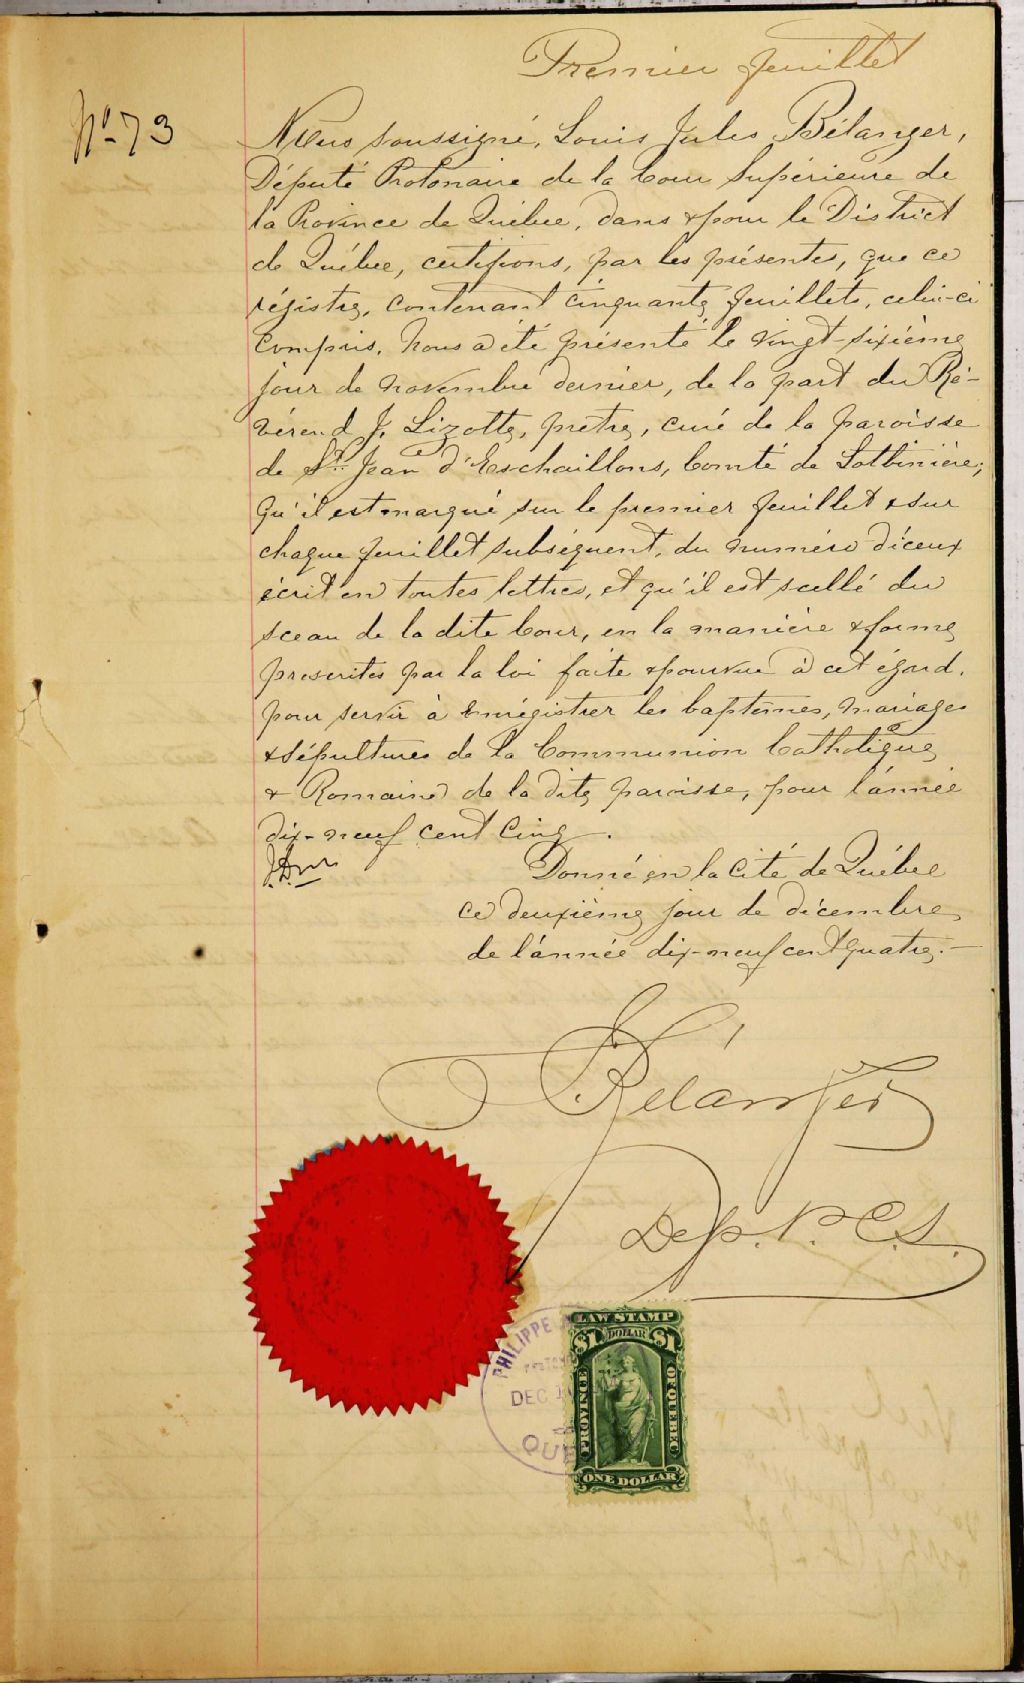 Premier feuillet
No 73
Nous soussigné, Louis Jules Bélanger,
Député Protonaire de la Cour Supérieure de
la Province de Québec, dans & pour le District
de Québec, certifions, par les présentes, que ce
régistre, contenant cinquante feuillets, celui-ci
compris, nous a été présenté le vingt-sixième
jour de novembre dernier, de la part du Ré-
vérend J. Lizotte, prêtre, curé de la paroisse
de St. Jean d'Eschaillons, Comté de Lotbinière;
qu'il est marqué sur le premier feuillet & sur
chaque feuillet subséquent, du numéro d'iceux
écrit en toutes lettres, et qu'il est scellé du
sceau de la dite Cour, en la manière & forme
prescrites par la loi faite & pourvue à cet égard,
pour servir à enrégistrer les baptêmes, mariages
& sépultures de la Communion Catholique
& Romaine de la dite paroisse, pour l'année
dix-neuf cent cinq.
Donné en la Cité de Québec
ce deuxième jour de décembre
de l'année dix-neuf cent quatre.-
Bélanger
Dep. P. C. S.
LAW STAMP
$1 DOLLAR $1
PROVINCE OF QUEBEC
ONE DOLLAR
PHILIPPE
DEC
QUEBEC